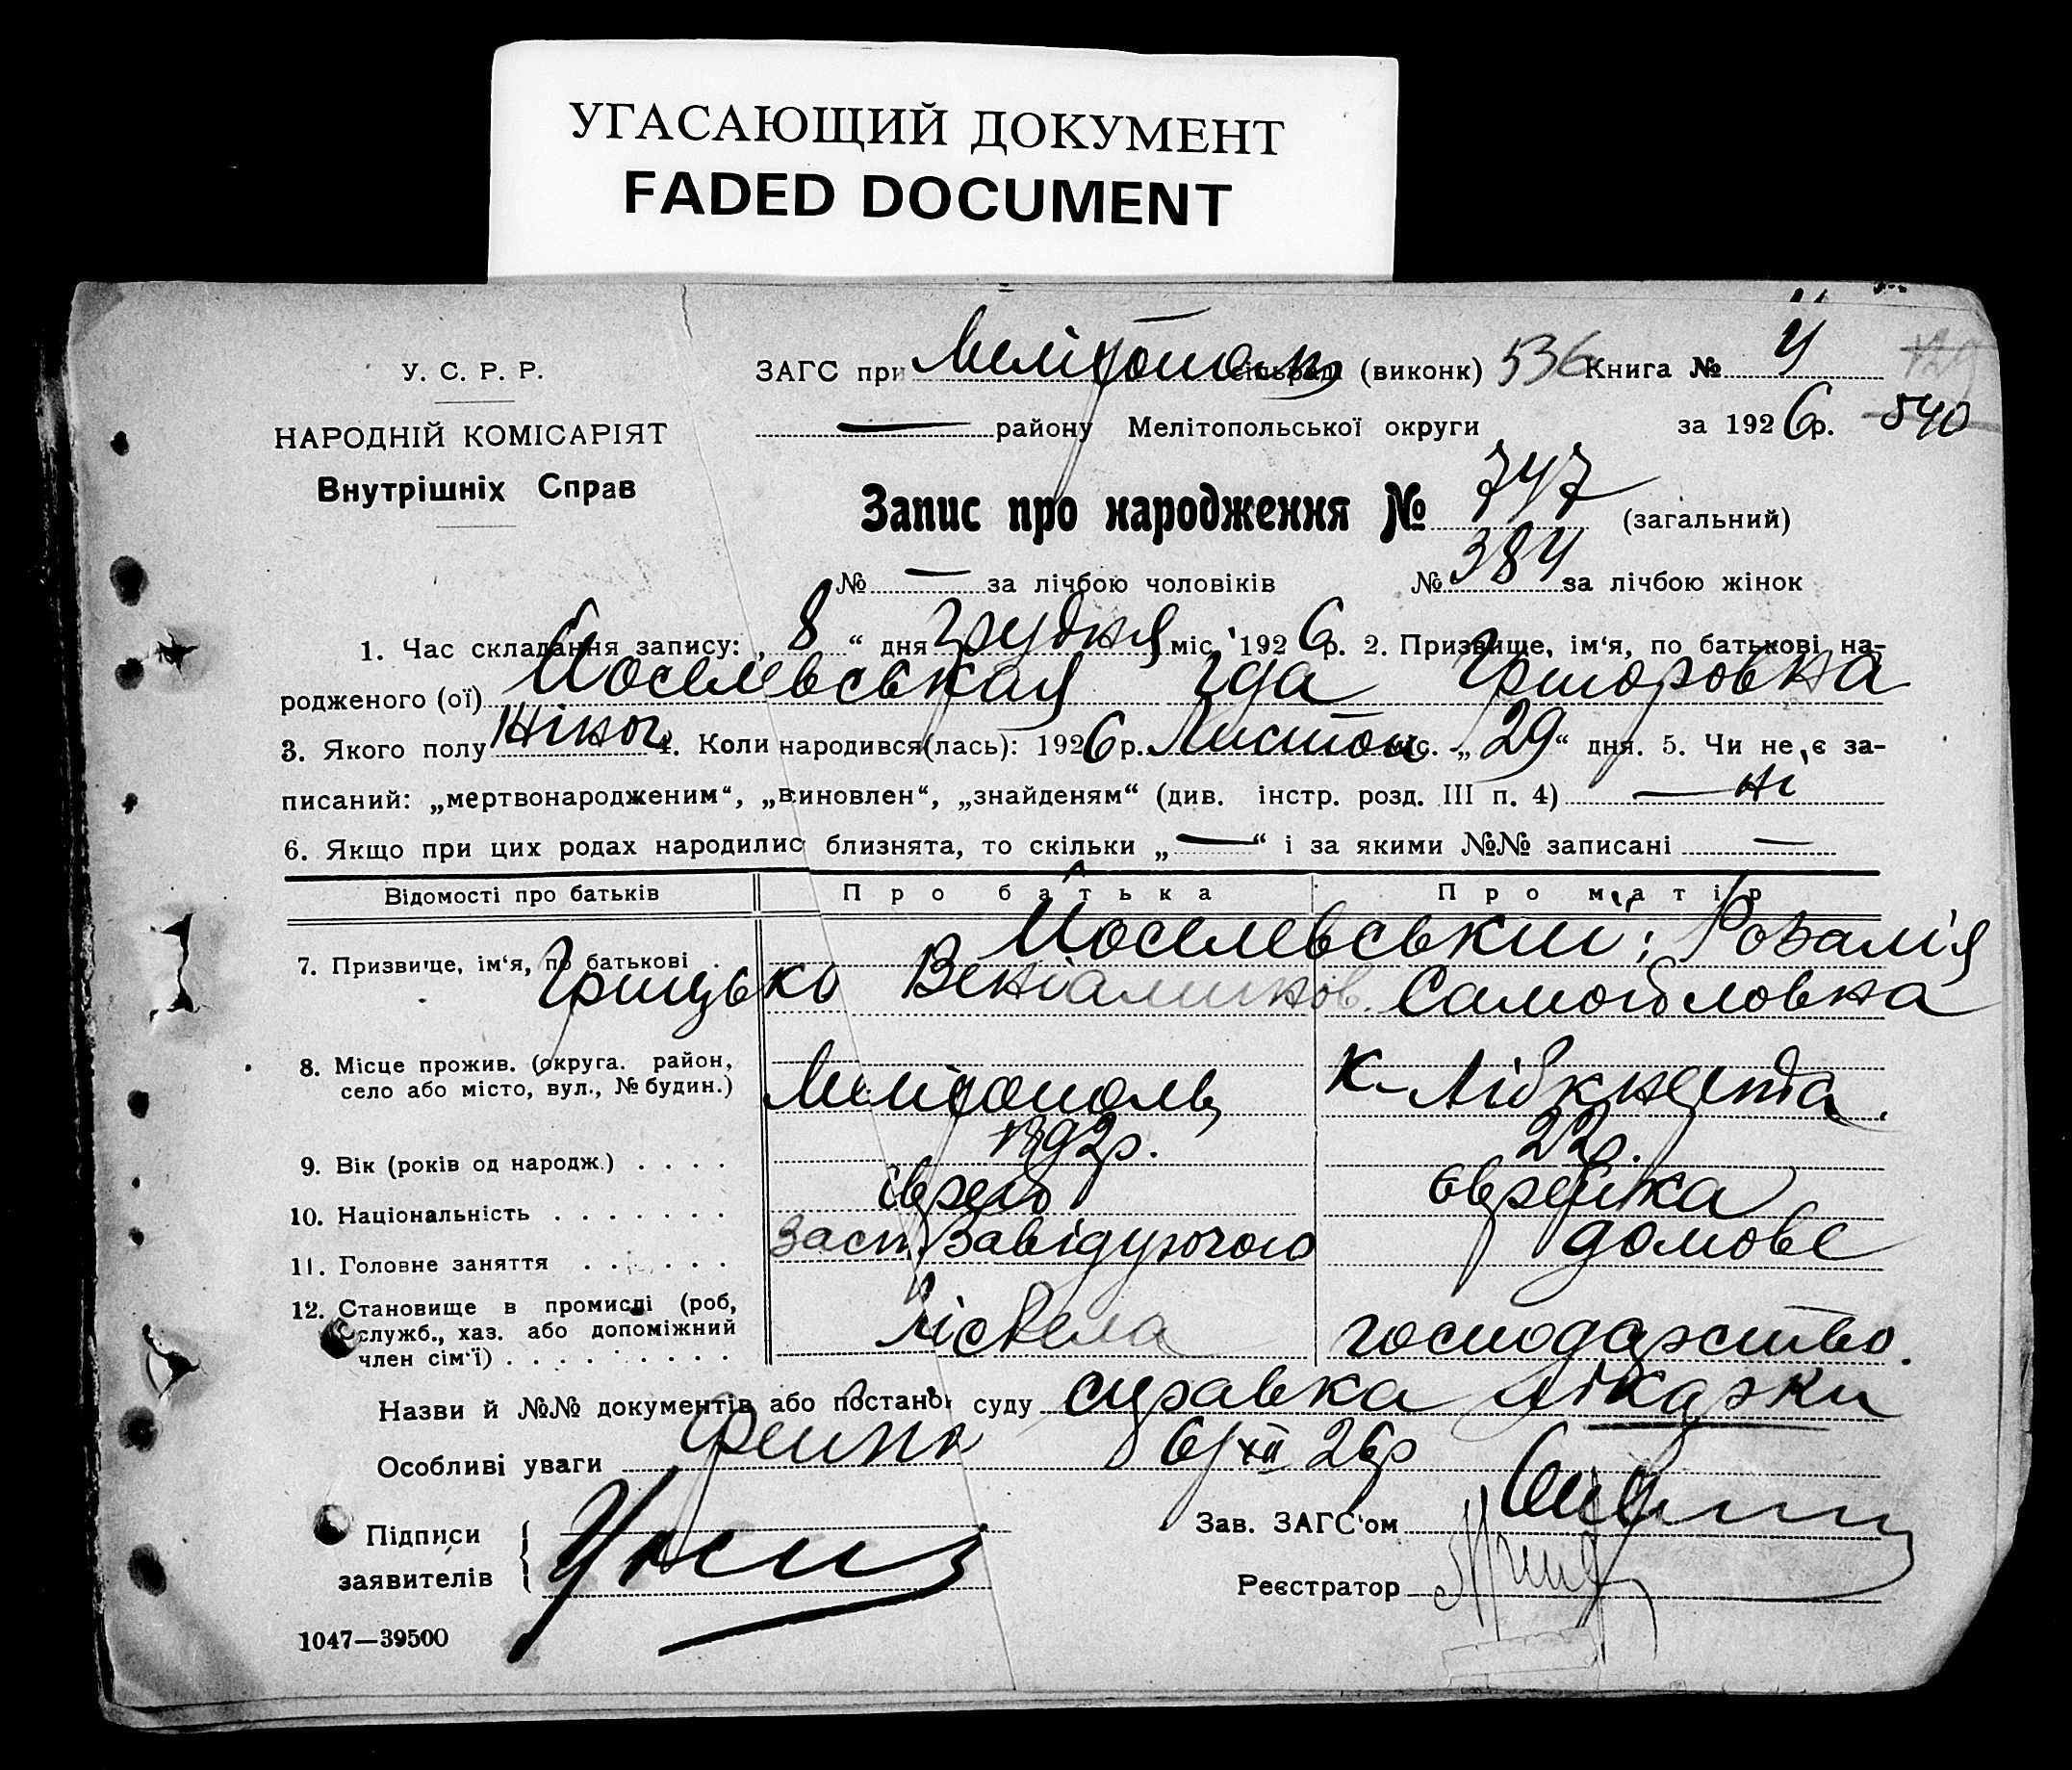 УГАСАЮЩИЙ ДОКУМЕНТ
FADED DOCUMENT
У. С. Р. Р.
НАРОДНІЙ КОМІСАРІЯТ
Внутрішніх Справ
ЗАГС при Мелітопольск (виконк) 536 Книга № 4
— району Мелітопольської округи за 1926 р. 540
Запис про народження № 747 (загальний)
№ — за лічбою чоловіків № 384 за лічбою жінок
1. Час складання запису: „ 8 “ дня грудня міс. 1926 р. 2. Призвище, ім‘я, по батькові на-
родженого (ої) Иоселевськая Іда Григоровна
3. Якого полу жіноч 4. Коли народився(лась): 1926 р. Листоп міс. „ 29 “ дня. 5. Чи не є за-
писаний: „мертвонародженим“, „виновлен“, „знайденям“ (див. інстр. розд. III п. 4) — ні
6. Якщо при цих родах народились близнята, то скільки „ — “ і за якими №№ записані —
Відомості про батьків Про батька Про матір
7. Призвище, ім‘я, по батькові . Иоселевський; Розалія
Грицько Веніамінов. Самойловна
8. Місце прожив. (округа. район,
село або місто, вул., № будин.) Мелітополь К-Лібкнехта.
9. Вік (років од народж.) . . . . 1892р. 22р.
10. Національність . . . . . . . єврей єврейка
11. Головне заняття . . . . . . заст. Завідуючого домове
12. Становище в промислі (роб,
служб., хаз. або допоміжний
член сім‘ї) . . . . . . . . . господарство.
Назви й №№ документів або постанов суду справка лікарки
Особливі уваги 6/XII 26р
Підписи
заявителів
Зав. ЗАГС‘ом
Реєстратор
1047—39500